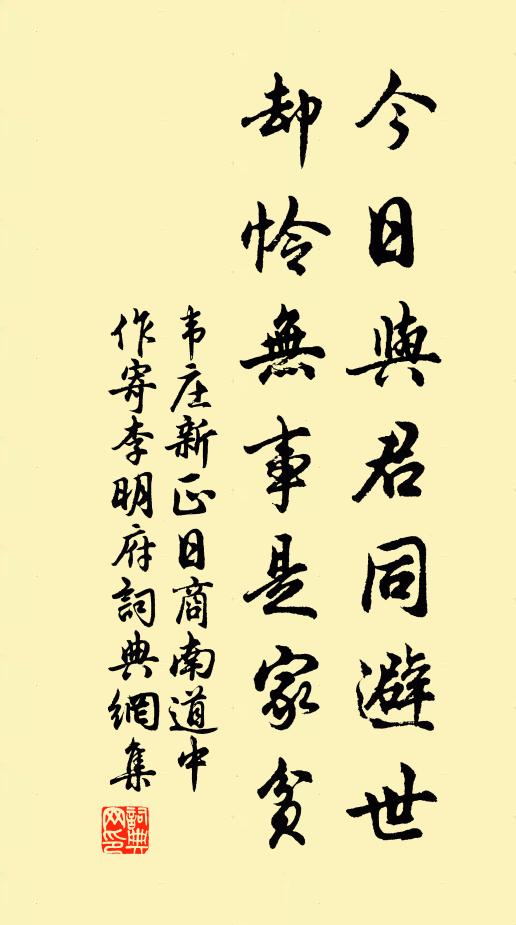 今日與君同避世
却怜無事是家貧
韦庄新正日商南道中
作寄李明府詞典網集
詞典
网印